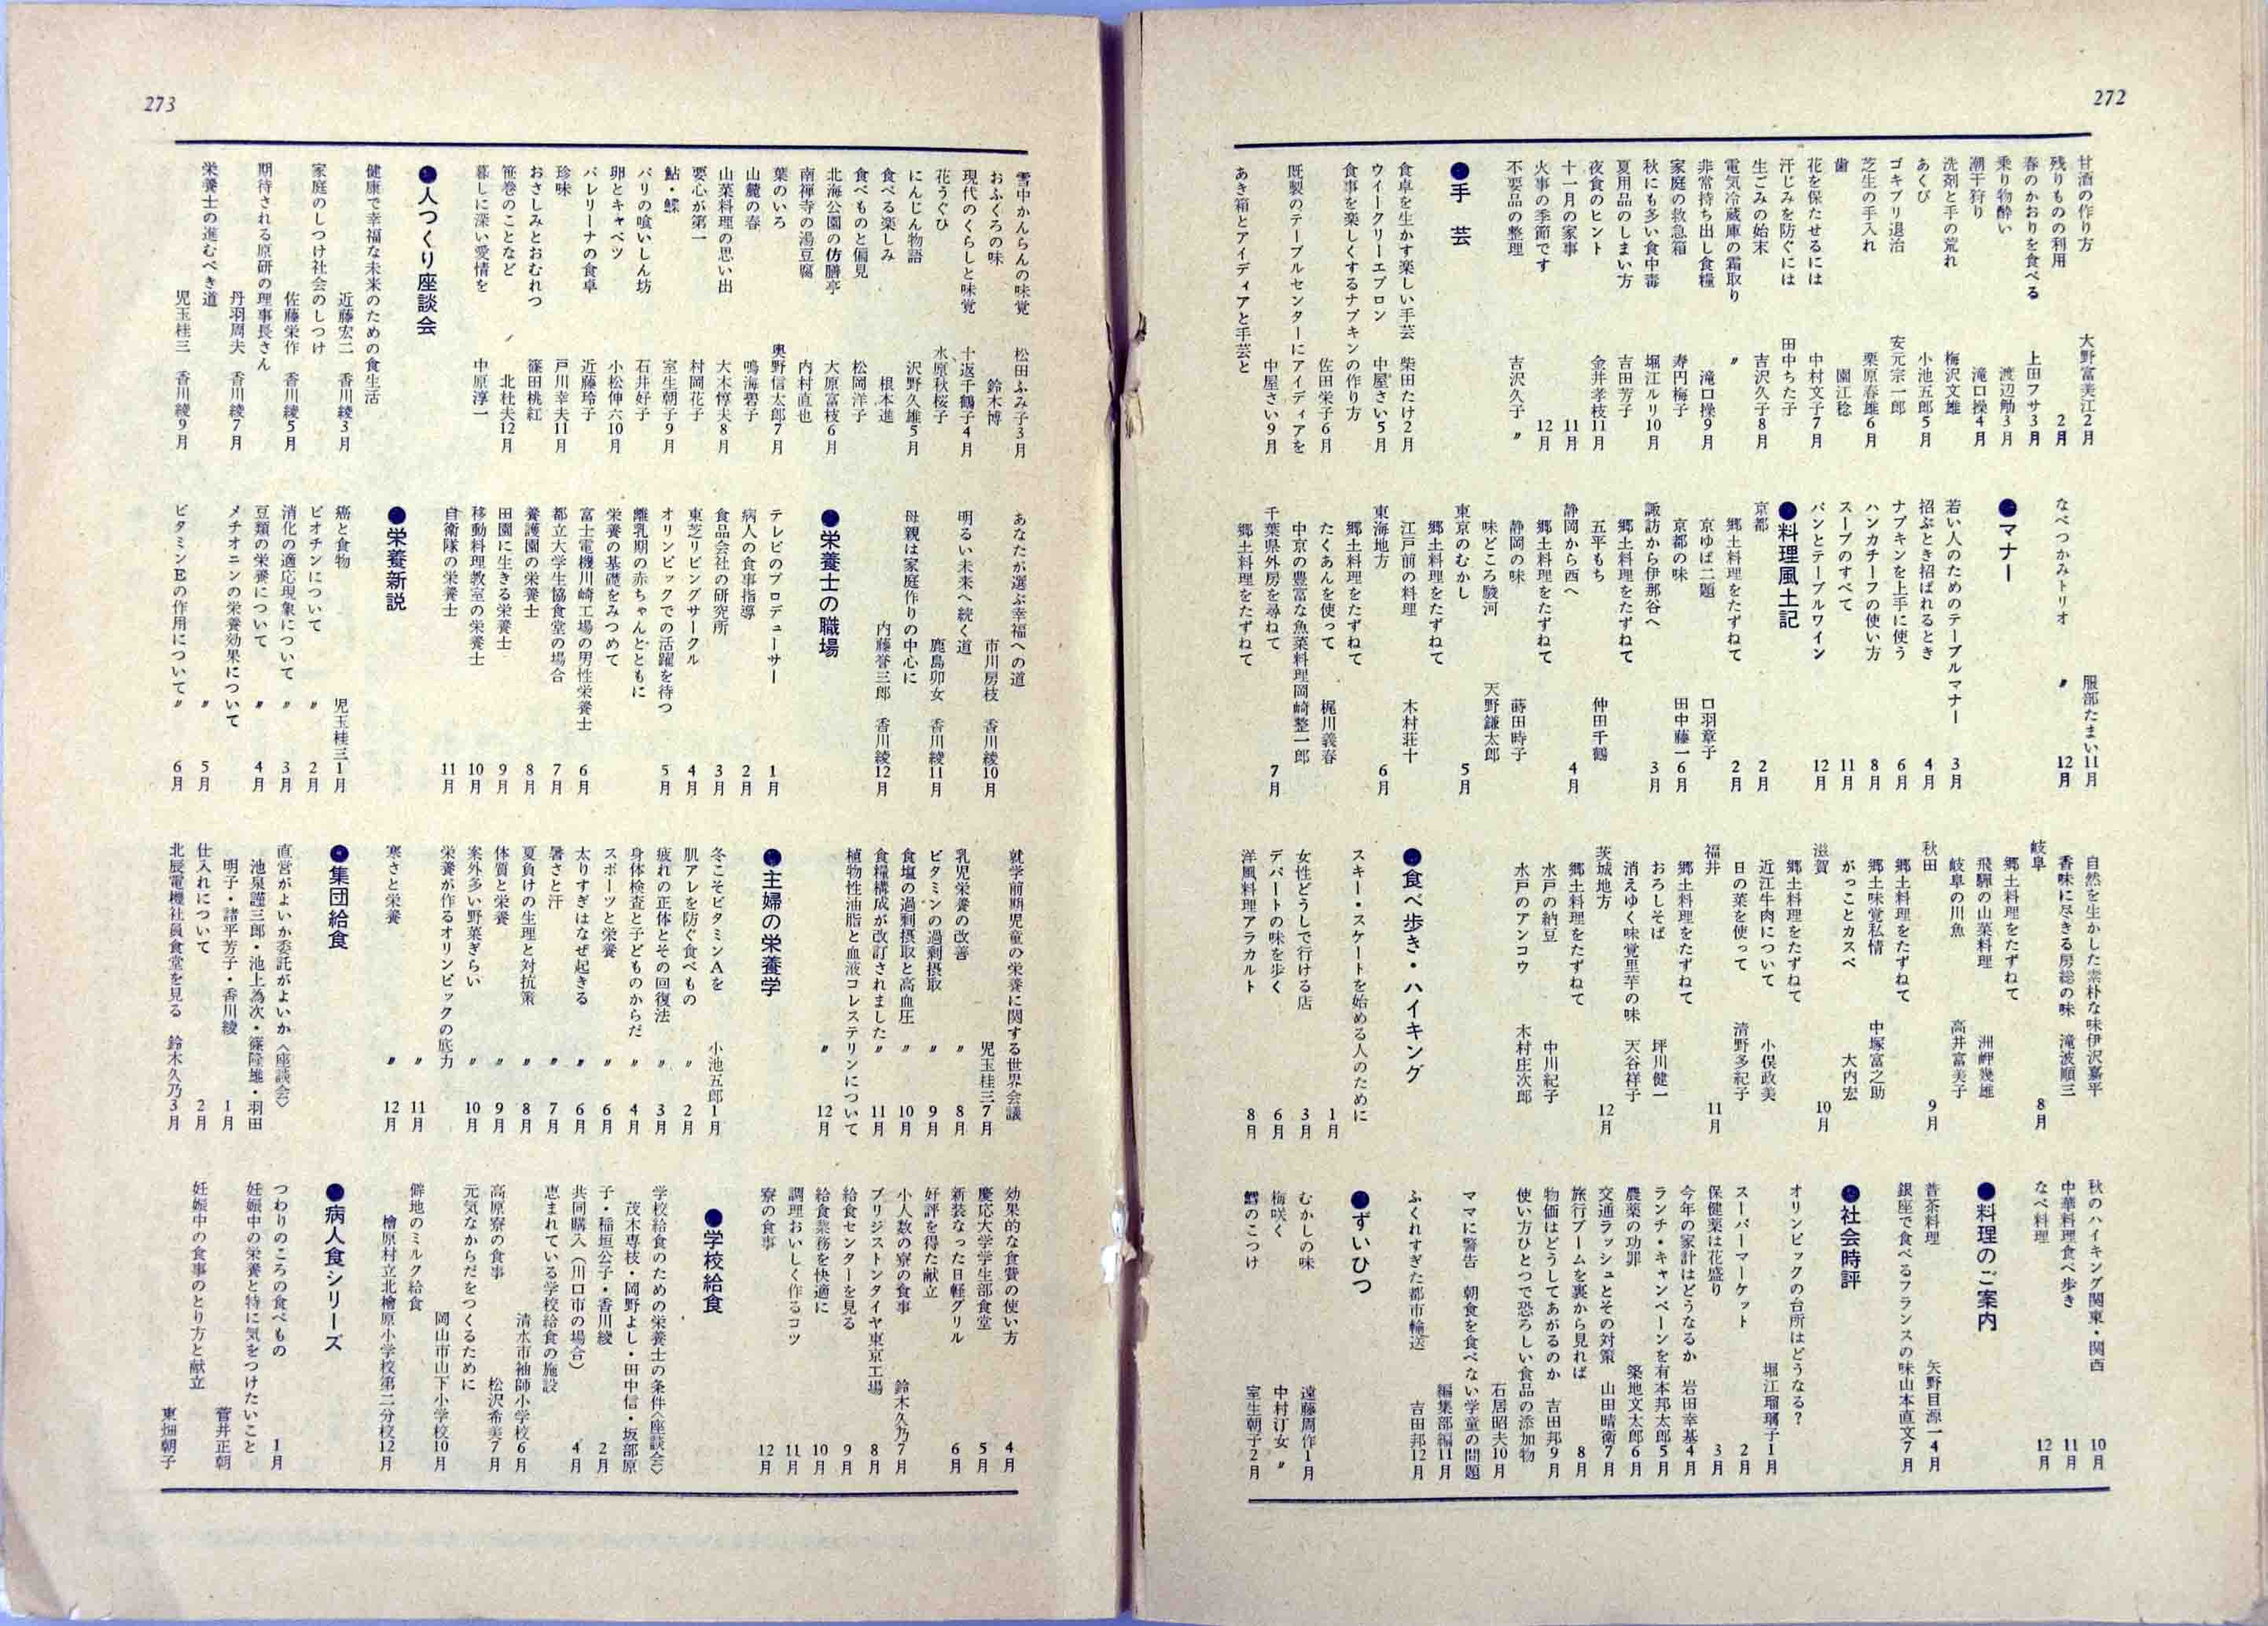 272
甘酒の作り方　大野富美江2月
残りものの利用　2月
春のかおりを食べる　上田フサ3月
乗り物酔い　渡辺勉3月
潮干狩り　滝口操4月
洗剤と手の荒れ　梅沢文雄
あくび　小池五郎5月
ゴキブリ退治　安元宗一郎
芝生の手入れ　栗原春雄6月
歯　園江稔
花を保たせるには　中村文子7月
汗じみを防ぐには　田中ちた子
生ごみの始末　吉沢久子8月
電気冷蔵庫の霜取り　〃
非常持ち出し食糧　滝口操9月
家庭の救急箱　寿円梅子
秋にも多い食中毒　堀江ルリ10月
夏用品のしまい方　吉田芳子
夜食のヒント　金井孝枝11月
十一月の家事　11月
火事の季節です　12月
不要品の整理　吉沢久子　〃
●手　芸
食卓を生かす楽しい手芸　柴田たけ2月
ウイークリーエプロン　中屋さい5月
食事を楽しくするナプキンの作り方
佐田栄子6月
既製のテーブルセンターにアイディアを
中屋さい9月
あき箱とアイディアと手芸と
服部たまい11月
なべつかみトリオ　〃　12月
●マナー
若い人のためのテーブルマナー　3月
招ぶとき招ばれるとき　4月
ナプキンを上手に使う　6月
ハンカチーフの使い方　8月
スープのすべて　11月
パンとテーブルワイン　12月
●料理風土記
京都　2月
郷土料理をたずねて　2月
京ゆば二題　口羽章子
京都の味　田中藤一6月
諏訪から伊那谷へ　3月
郷土料理をたずねて
五平もち　仲田千鶴
静岡から西へ　4月
郷土料理をたずねて
静岡の味　蒔田時子
味どころ駿河　天野鎌太郎
東京のむかし　5月
郷土料理をたずねて
江戸前の料理　木村荘十
東海地方　6月
郷土料理をたずねて
たくあんを使って　梶川義春
中京の豊富な魚菜料理岡崎整一郎
千葉県外房を尋ねて　7月
郷土料理をたずねて
自然を生かした素朴な味伊沢嘉平
香味に尽きる房総の味　滝波順三
岐阜　8月
郷土料理をたずねて
飛騨の山菜料理　洲岬幾雄
岐阜の川魚　高井富美子
秋田　9月
郷土料理をたずねて
郷土味覚私情　中塚富之助
がっことカスベ　大内宏
滋賀　10月
郷土料理をたずねて
近江牛肉について　小俣政美
日の菜を使って　清野多紀子
福井　11月
郷土料理をたずねて
おろしそば　坪川健一
消えゆく味覚里芋の味　天谷祥子
茨城地方　12月
郷土料理をたずねて
水戸の納豆　中川紀子
水戸のアンコウ　木村庄次郎
●食べ歩き・ハイキング
スキー・スケートを始める人のために
1月
女性どうしで行ける店　3月
デパートの味を歩く　6月
洋風料理アラカルト　8月
秋のハイキング関東・関西　10月
中華料理食べ歩き　11月
なべ料理　12月
●料理のご案内
普茶料理　矢野目源一4月
銀座で食べるフランスの味山本直文7月
●社会時評
オリンピックの台所はどうなる？
堀江瑠璃子1月
スーパーマーケット　2月
保健薬は花盛り　3月
今年の家計はどうなるか　岩田幸基4月
ランチ・キャンペーンを有本邦太郎5月
農薬の功罪　築地文太郎6月
交通ラッシュとその対策　山田晴衛7月
旅行ブームを裏から見れば　8月
物価はどうしてあがるのか　吉田邦9月
使い方ひとつで恐ろしい食品の添加物
石居昭夫10月
ママに警告　朝食を食べない学童の問題
編集部編11月
ふくれすぎた都市輸送　吉田邦12月
●ずいひつ
むかしの味　遠藤周作1月
梅咲く　中村汀女　〃
鱈のこつけ　室生朝子2月
273
雪中かんらんの味覚　松田ふみ子3月
おふくろの味　鈴木博
現代のくらしと味覚　十返千鶴子4月
花うぐひ　水原秋桜子
にんじん物語　沢野久雄5月
食べる楽しみ　根本進
食べものと偏見　松岡洋子
北海公園の仿膳亭　大原富枝6月
南禅寺の湯豆腐　内村直也
葉のいろ　奥野信太郎7月
山麓の春　鳴海碧子
山菜料理の思い出　大木惇夫8月
要心が第一　村岡花子
鮎・鰈　室生朝子9月
パリの喰いしん坊　石井好子
卵とキャベツ　小松伸六10月
バレリーナの食卓　近藤玲子
珍味　戸川幸夫11月
おさしみとおむれつ　篠田桃紅
笹巻のことなど　北杜夫12月
暮しに深い愛情を　中原淳一
●人つくり座談会
健康で幸福な未来のための食生活
近藤宏二　香川綾3月
家庭のしつけ社会のしつけ
佐藤栄作　香川綾5月
期待される原研の理事長さん
丹羽周夫　香川綾7月
栄養士の進むべき道
児玉桂三　香川綾9月
あなたが選ぶ幸福への道
市川房枝　香川綾10月
明るい未来へ続く道
鹿島卯女　香川綾11月
母親は家庭作りの中心に
内藤誉三郎　香川綾12月
●栄養士の職場
テレビのプロデューサー　1月
病人の食事指導　2月
食品会社の研究所　3月
東芝リビングサークル　4月
オリンピックでの活躍を待つ　5月
栄養の基礎をみつめて
離乳期の赤ちゃんとともに
富士電機川崎工場の男性栄養士　6月
都立大学生協食堂の場合　7月
養護園の栄養士　8月
田園に生きる栄養士　9月
移動料理教室の栄養士　10月
自衛隊の栄養士　11月
●栄養新説
癌と食物　児玉桂三1月
ビオチンについて　〃　2月
消化の適応現象について　〃　3月
豆類の栄養について　〃　4月
メチオニンの栄養効果について
〃　5月
ビタミンEの作用について　〃　6月
就学前期児童の栄養に関する世界会議
児玉桂三7月
乳児栄養の改善　〃　8月
ビタミンの過剰摂取　〃　9月
食塩の過剰摂取と高血圧　〃　10月
食糧構成が改訂されました　〃　11月
植物性油脂と血液コレステリンについて
〃　12月
●主婦の栄養学
冬こそビタミンAを　小池五郎1月
肌アレを防ぐ食べもの　〃　2月
疲れの正体とその回復法　〃　3月
身体検査と子どものからだ　〃　4月
スポーツと栄養　〃　6月
太りすぎはなぜ起きる　〃　6月
暑さと汗　〃　7月
夏負けの生理と対抗策　〃　8月
体質と栄養　〃　9月
案外多い野菜ぎらい　〃　10月
栄養が作るオリンピックの底力
〃　11月
寒さと栄養　〃　12月
●集団給食
直営がよいか委託がよいか〈座談会〉
池泉謹三郎・池上為次・篠隆雄・羽田
明子・諸平芳子・香川綾　1月
仕入れについて　2月
北辰電機社員食堂を見る　鈴木久乃3月
効果的な食費の使い方　4月
慶応大学学生部食堂　5月
新装なった日軽グリル　6月
好評を得た献立
小人数の寮の食事　鈴木久乃7月
ブリジストンタイヤ東京工場　8月
給食センターを見る　9月
給食業務を快適に　10月
調理おいしく作るコツ　11月
寮の食事　12月
●学校給食
学校給食のための栄養士の条件〈座談会〉
茂木専枝・岡野よし・田中信・坂部原
子・稲垣公子・香川綾　2月
共同購入（川口市の場合）　4月
恵まれている学校給食の施設
清水市袖師小学校6月
高原寮の食事　松沢希美7月
元気なからだをつくるために
岡山市山下小学校10月
僻地のミルク給食
檜原村立北檜原小学校第二分校12月
●病人食シリーズ
つわりのころの食べもの　1月
妊娠中の栄養と特に気をつけたいこと
菅井正朝
妊娠中の食事のとり方と献立
東畑朝子